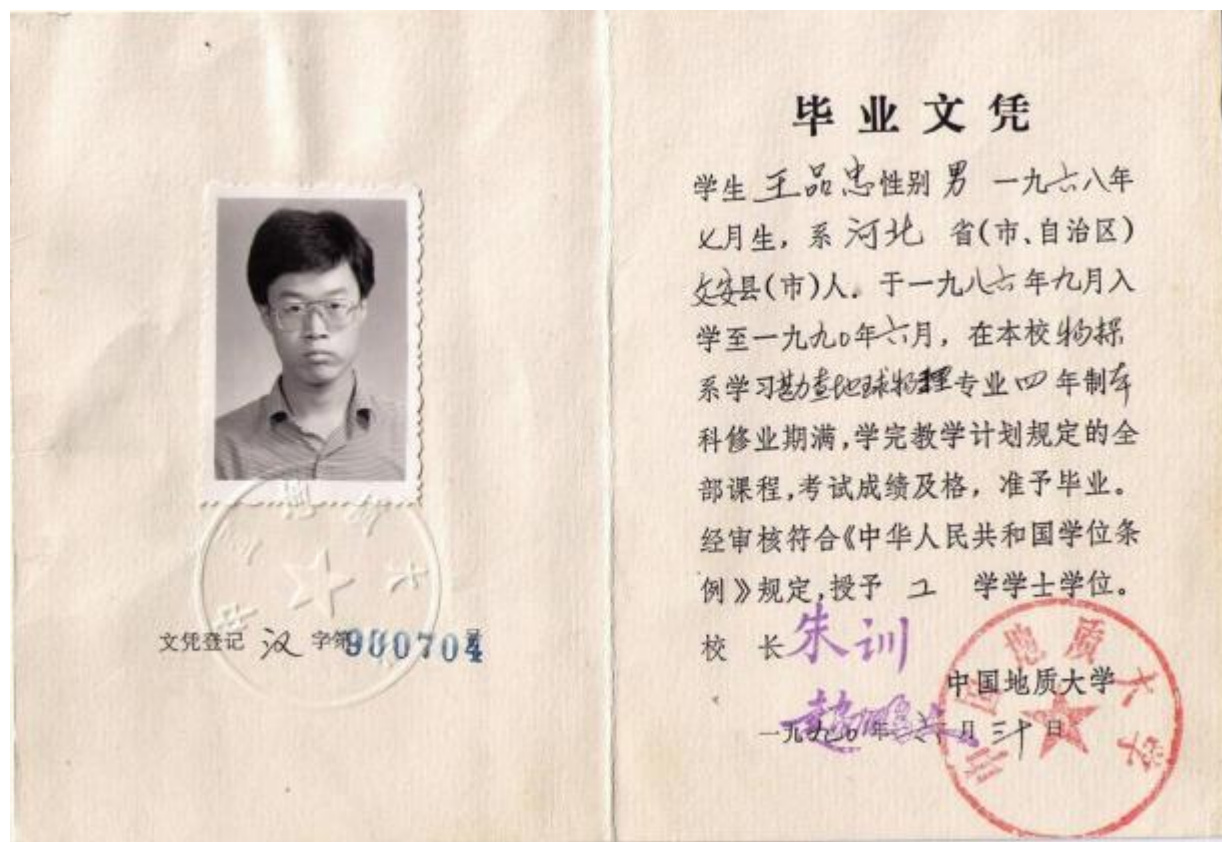 文凭登记 汉 字第900704号
毕业文凭
学生 王品忠 性别 男 一九六八年
七月生，系 河北 省(市、自治区)
文安县(市)人．于一九八六年九月入
学至一九九〇年六月，在本校物探
系学习勘查地球物理专业四年制本
科修业期满,学完教学计划规定的全
部课程,考试成绩及格，准予毕业。
经审核符合《中华人民共和国学位条
例》规定,授予 工 学学士学位。
校 长 朱训
赵鹏大
中国地质大学
一九九〇年六月三十日
中国地质大学